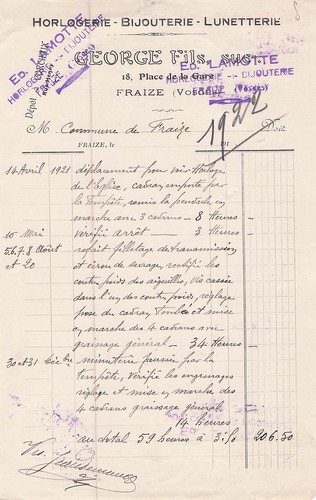 HORLOGERIE - BIJOUTERIE - LUNETTERIE
GEORGE Fils, SUCr
18, Place de la Gare
FRAIZE (Vosges)
ED. LAMOTTE
HORLOGERIE - BIJOUTERIE
FRAIZE
ED. LAMOTTE
HORLOGERIE - BIJOUTERIE
FRAIZE (Vosges)
Dépôt
1922
M. Commune de Fraize Doit
FRAIZE, le 191
14 Avril 1921 déplacement pour voir Horloge
de l'Eglise, cadran emporté par
la Tempête, remis la pendule en
marche avec 3 cadrans - 8 Heures -
10 Mai vérifié arrêt - 3 Heures -
5.6.7.8 Août refait filletage de transmission
et 20 et écrou de serrage, rectifié les
contre poids des aiguilles, vis cassée
dans l'un des contre poids, réglage
pose du cadran tombé et mise
en marche des 4 cadrans avec
graissage général - 34 Heures -
30 et 31 minuterie faussée par la
Tempête, vérifié les engrenages
réglage et mise en marche des
4 cadrans graissage général
14 heures
au total 59 heures à 3,50 206.50
Vu.